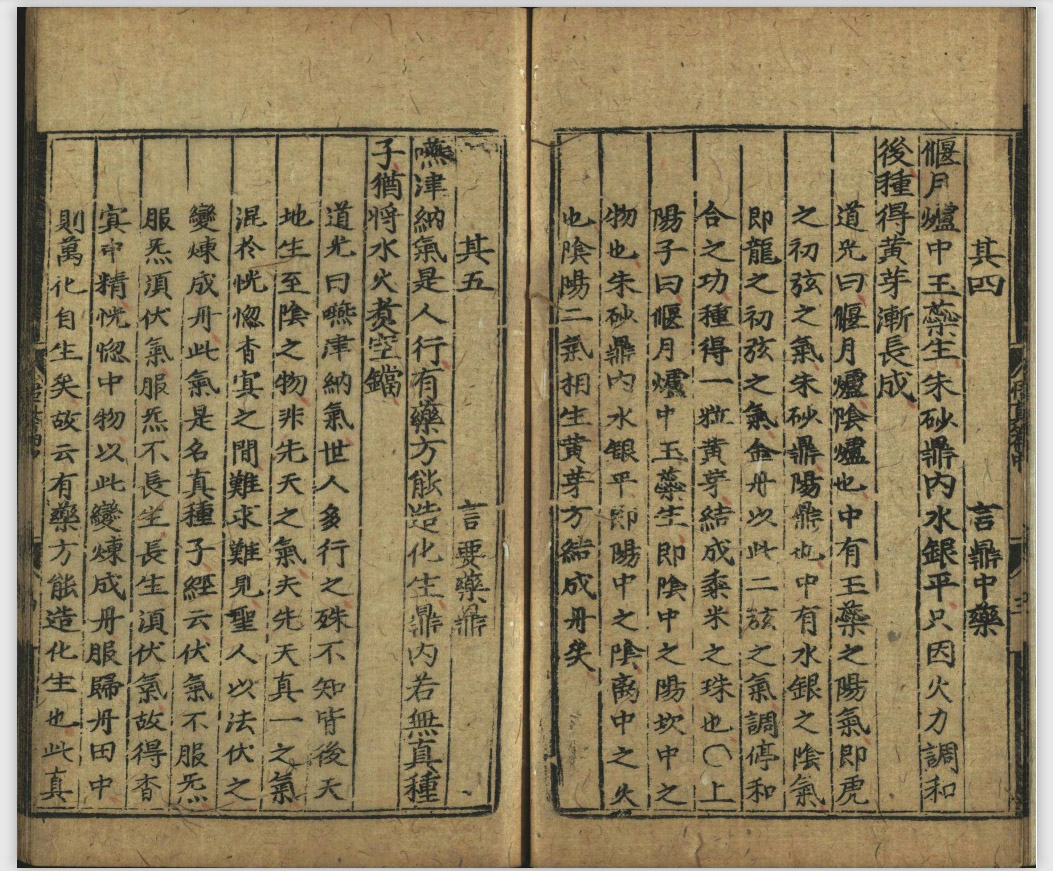 其四　言鼎中藥
偃月爐中玉蘂生朱砂鼎内水銀平只因火力調和
後種得黃芽漸長成
道光曰偃月爐陰爐也中有玉蘂之陽氣即虎
之初弦之氣朱砂鼎陽鼎也中有水銀之陰氣
即龍之初弦之氣金丹以此二弦之氣調停和
合之功種得一粒黃芽結成黍米之珠也〇上
陽子曰偃月爐中玉蘂生即陰中之陽坎中之
物也朱砂鼎内水銀平即陽中之陰离中之火
也陰陽二氣相生黃芽方結成丹矣
其五　言要藥鼎
嚥津納氣是人行有藥方能造化生鼎内若無真種
子猶將水火煑空鐺
道光曰嚥津納氣世人多行之殊不知皆後天
地生至陰之物非先天之氣夫先天真一之氣
混於恍惚杳㝠之間難求難見聖人以法伏之
變煉成丹此氣是名真種子經云伏氣不服炁
服炁湏伏氣服炁不長生長生湏伏氣故得杳
㝠中精恍惚中物以此變煉成丹服歸丹田中
則萬化自生矣故云有藥方能造化生也此真